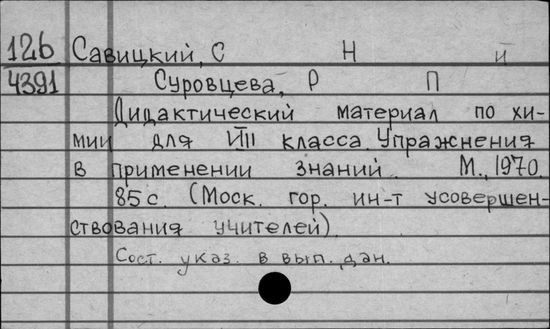 126 Савицкий, С Н й
4391 Суровцева, Р П
Дидактический материал по хи-
мии для VIII класса. Упражнения
в применении знаний. М., 1970.
85 с. (Моск. гор. ин-т усовершен-
ствования учителей).
Сост. указ. в вып. дан.